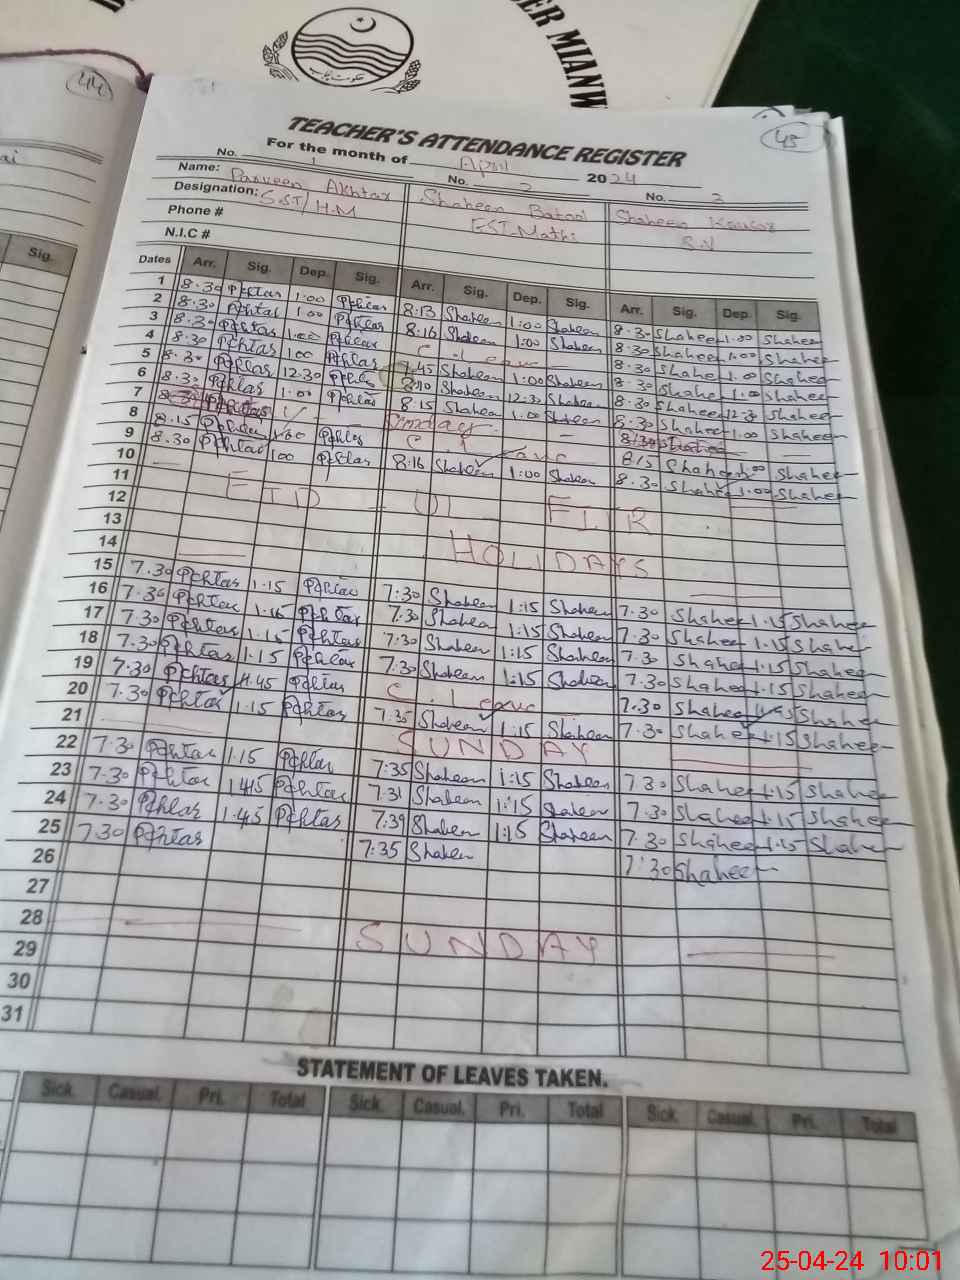 ER MIANW
حکومت پنجاب
44
45
TEACHER'S ATTENDANCE REGISTER
For the month of April 2024
No. 1 No. 2 No. 3
Name: Parveen Akhtar Shaheen Batool Shaheen Kausar
Designation: S.ST/H.M EST.Math S.V
Phone #
N.I.C #
Sig.
Dates Arr. Sig. Dep. Sig. Arr. Sig. Dep. Sig. Arr. Sig. Dep. Sig.
1 8.30 1:00 8:13 Shaheen 1:00 Shaheen 8.30 Shaheen 1.00 Shaheen
2 8.30 1.00 8:16 Shaheen 1:00 Shaheen 8.30 Shaheen 1.00 Shaheen
3 8.30 1.00 C. Leave 8.30 Shaheen 1.00 Shaheen
4 8.30 1.00 7.45 Shaheen 1:00 Shaheen 8.30 Shaheen 1.00 Shaheen
5 8.30 12.30 8:10 Shaheen 12:30 Shaheen 8.30 Shaheen 12.30 Shaheen
6 8.30 1.00 8:15 Shaheen 1:00 Shaheen 8.30 Shaheen 1.00 Shaheen
7 Sunday
8 8.15 1.00 C. Leave 8.15 Shaheen 1.00 Shaheen
9 8.30 1.00 8:16 Shaheen 1:00 Shaheen 8.30 Shaheen 1.00 Shaheen
10
11 EID UL FITR
12
13 HOLIDAYS
14
15 7.30 1.15 7:30 Shaheen 1:15 Shaheen 7.30 Shaheen 1.15 Shaheen
16 7.30 1.15 7:30 Shaheen 1:15 Shaheen 7.30 Shaheen 1.15 Shaheen
17 7.30 1.15 7:30 Shaheen 1:15 Shaheen 7.30 Shaheen 1.15 Shaheen
18 7.30 1.15 7:30 Shaheen 1:15 Shaheen 7.30 Shaheen 1.15 Shaheen
19 7.30 11.45 C. Leave 7.30 Shaheen Shaheen
20 7.30 1.15 7:35 Shaheen 1:15 Shaheen 7.30 Shaheen 1.15 Shaheen
21 SUNDAY
22 7.30 1.15 7:35 Shaheen 1:15 Shaheen 7.30 Shaheen 1.15 Shaheen
23 7.30 1.45 7:31 Shaheen 1:15 Shaheen 7.30 Shaheen 1.15 Shaheen
24 7.30 1.45 7:39 Shaheen 1:15 Shaheen 7.30 Shaheen 1.15 Shaheen
25 7.30 7:35 Shaheen 7:30 Shaheen
26
27
28 SUNDAY
29
30
31
STATEMENT OF LEAVES TAKEN.
Sick. Casual. Pri. Total Sick. Casual. Pri. Total Sick. Casual. Pri. Total
25-04-24 10:01